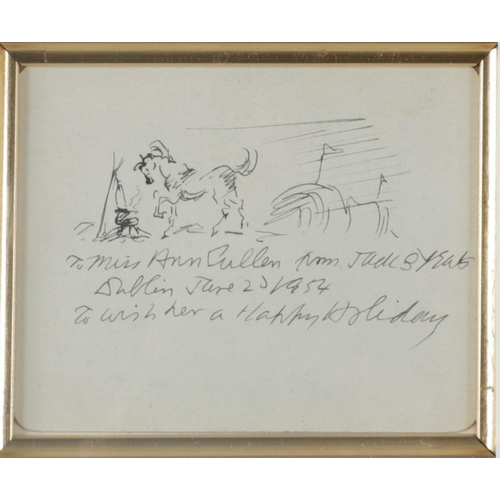 To Miss Ann Cullen from Jack B Yeats
Dublin June 23 1954
To wish her a Happy Holiday